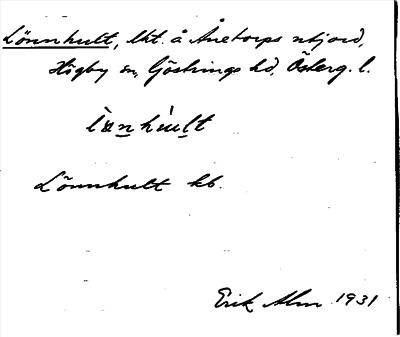 Lönnhult, lht. å Ånetorps utjord,
Högby sn, Göstrings hd, Österg. l.
Lönnhult kb.
Erik Alm 1931